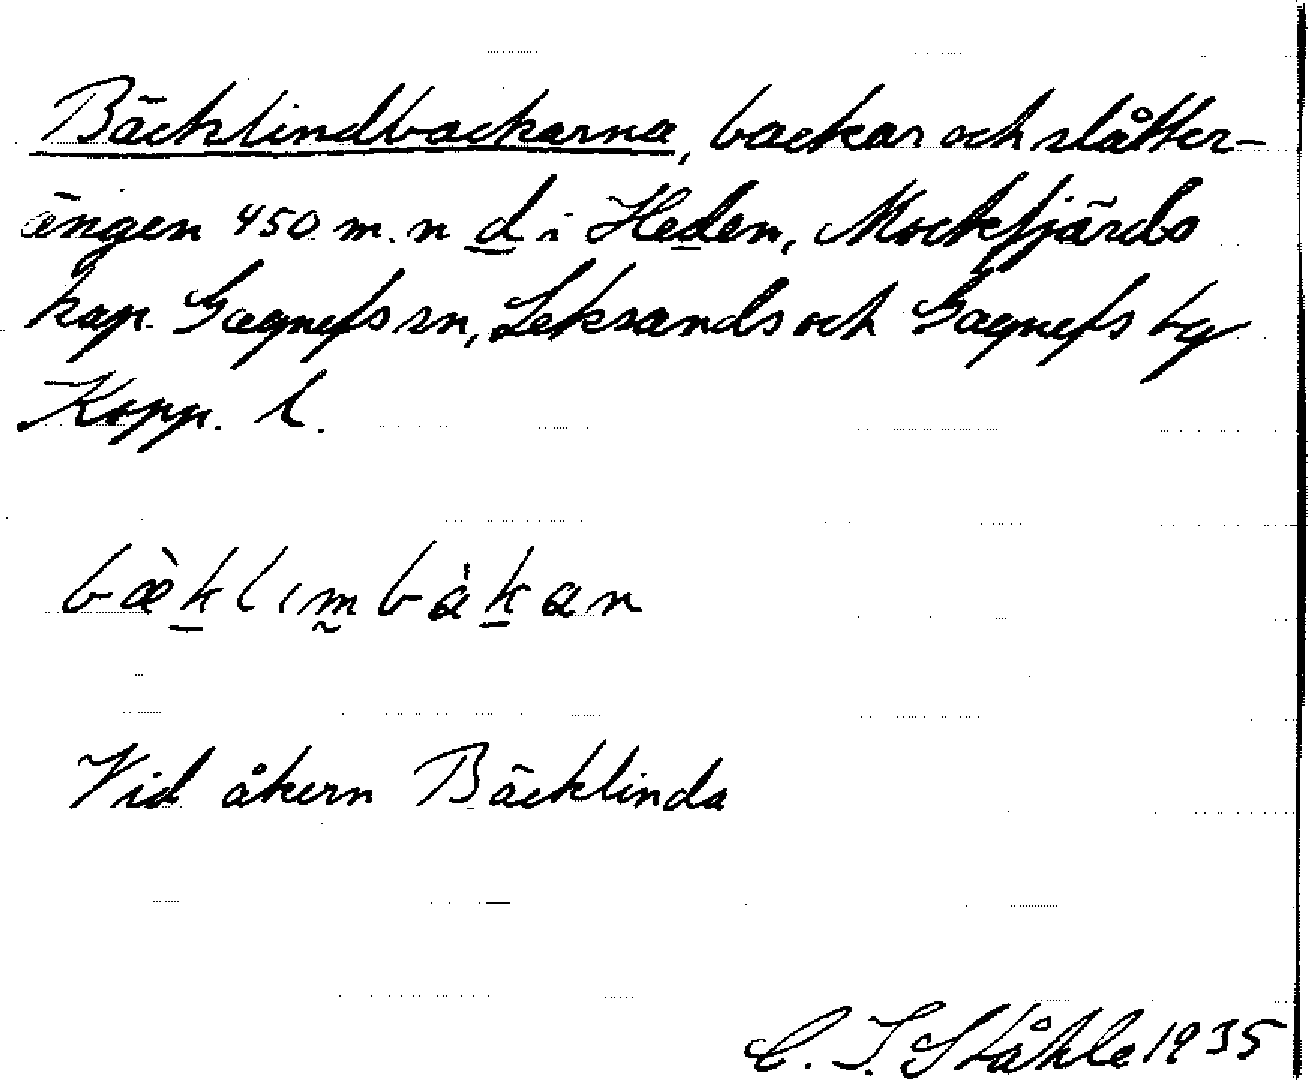 Bäcklindbackarna, backar och slåtter-
ängen 450 m. n d i Heden, Mockfjärds
kap. Gagnefs sn, Leksands och Gagnefs tg
Kopp. l.
bæ̀klım̰bàkan
Vid åkern Bäcklinda
C. I. Ståhle 1935